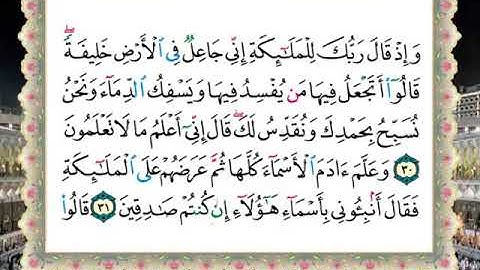 وَإِذْ قَالَ رَبُّكَ لِلْمَلَٰٓئِكَةِ إِنِّي جَاعِلٌ فِي ٱلْأَرْضِ خَلِيفَةً ۖ
قَالُوٓا۟ أَتَجْعَلُ فِيهَا مَن يُفْسِدُ فِيهَا وَيَسْفِكُ ٱلدِّمَآءَ وَنَحْنُ
نُسَبِّحُ بِحَمْدِكَ وَنُقَدِّسُ لَكَ ۖ قَالَ إِنِّيٓ أَعْلَمُ مَا لَا تَعْلَمُونَ
٣٠ وَعَلَّمَ ءَادَمَ ٱلْأَسْمَآءَ كُلَّهَا ثُمَّ عَرَضَهُمْ عَلَى ٱلْمَلَٰٓئِكَةِ
فَقَالَ أَنۢبِـُٔونِي بِأَسْمَآءِ هَٰٓؤُلَآءِ إِن كُنتُمْ صَٰدِقِينَ ٣١ قَالُوا۟